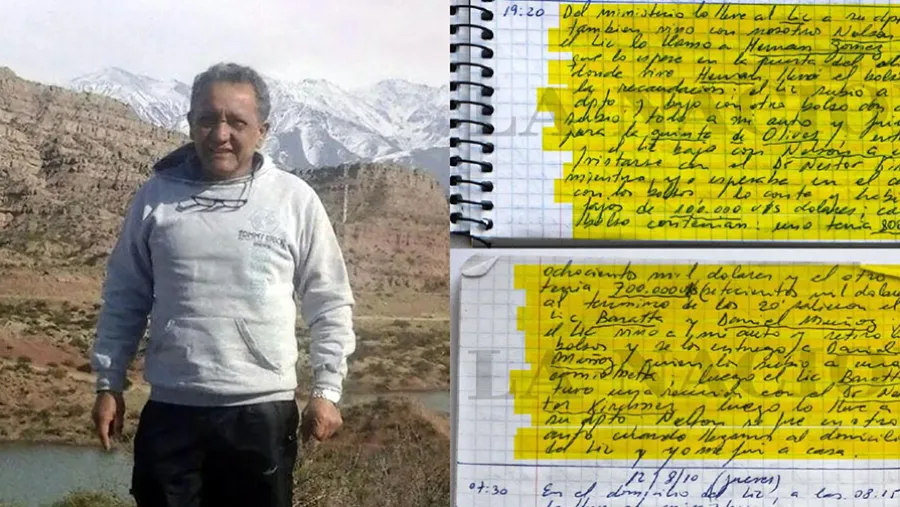 TOMMY
19:20 Del ministerio lo lleve al Lic a su dpto
tambien vino con nosotros Nelson
el Lic lo llamo a Hernan Gomez
que lo espere en la puerta del
donde vive Hernan, llevó el bolso
la recaudación; el Lic subio a
dpto y bajo con otro bolso con
subio todo a mi auto y
para la quinta de Olivos y
el Lic bajo con Nelson a
tristarse con el Dr Nestor
mientras yo esperaba en el
con los bolsos
fajos de 100.000 U$S dolares; ca
bolso contenian: uno tenia 800
ochocientos mil dolares y el otro
tenia 700.000 U$S (setecientos mil dolares
al termino de los 20'
Lic Baratta y Daniel Muñoz
el Lic vino a mi auto y retiro
bolsos y se los entrego a Daniel
Muñoz quien los subio a una
camioneta, luego el Lic Baratta
tuvo una reunion con el Dr Nes
tor Kirchner, luego lo lleve a
su dpto Nelson se fue en otro
auto cuando llegamos al domicilio
del Lic y yo me fui a casa.
12/8/10 (jueves)
07:30 En el domicilio del Lic, a las 08:15
lo lleve al ministerio
LA NACION
LA NACION